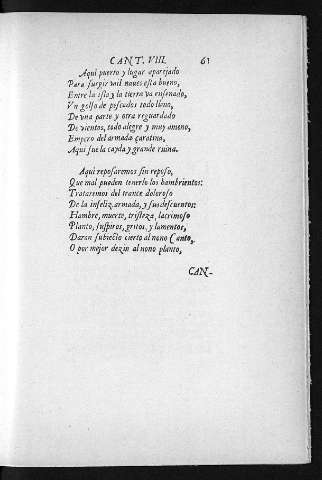 CANT. VIII. 61
Aqui puerto y lugar aparejado
Para surgir mil naues esta bueno,
Entre la isla y la tierra va ensenado,
Vn golfo de pescados todo lleno,
De vna parte y otra reguardado
De vientos, todo alegre y muy ameno,
Empero del armada çaratina,
Aqui fue la cayda y grande ruina.
Aqui reposaremos sin reposo,
Que mal pueden tenerlo los hambrientos:
Trataremos del trance doloroso
De la infeliz armada, y sus descuentos:
Hambre, muerte, tristeza, lacrimoso
Planto, suspiros, gritos, y lamentos,
Daran subiecto cierto al nono Canto,
O por mejor dezir al nono planto,
CAN-